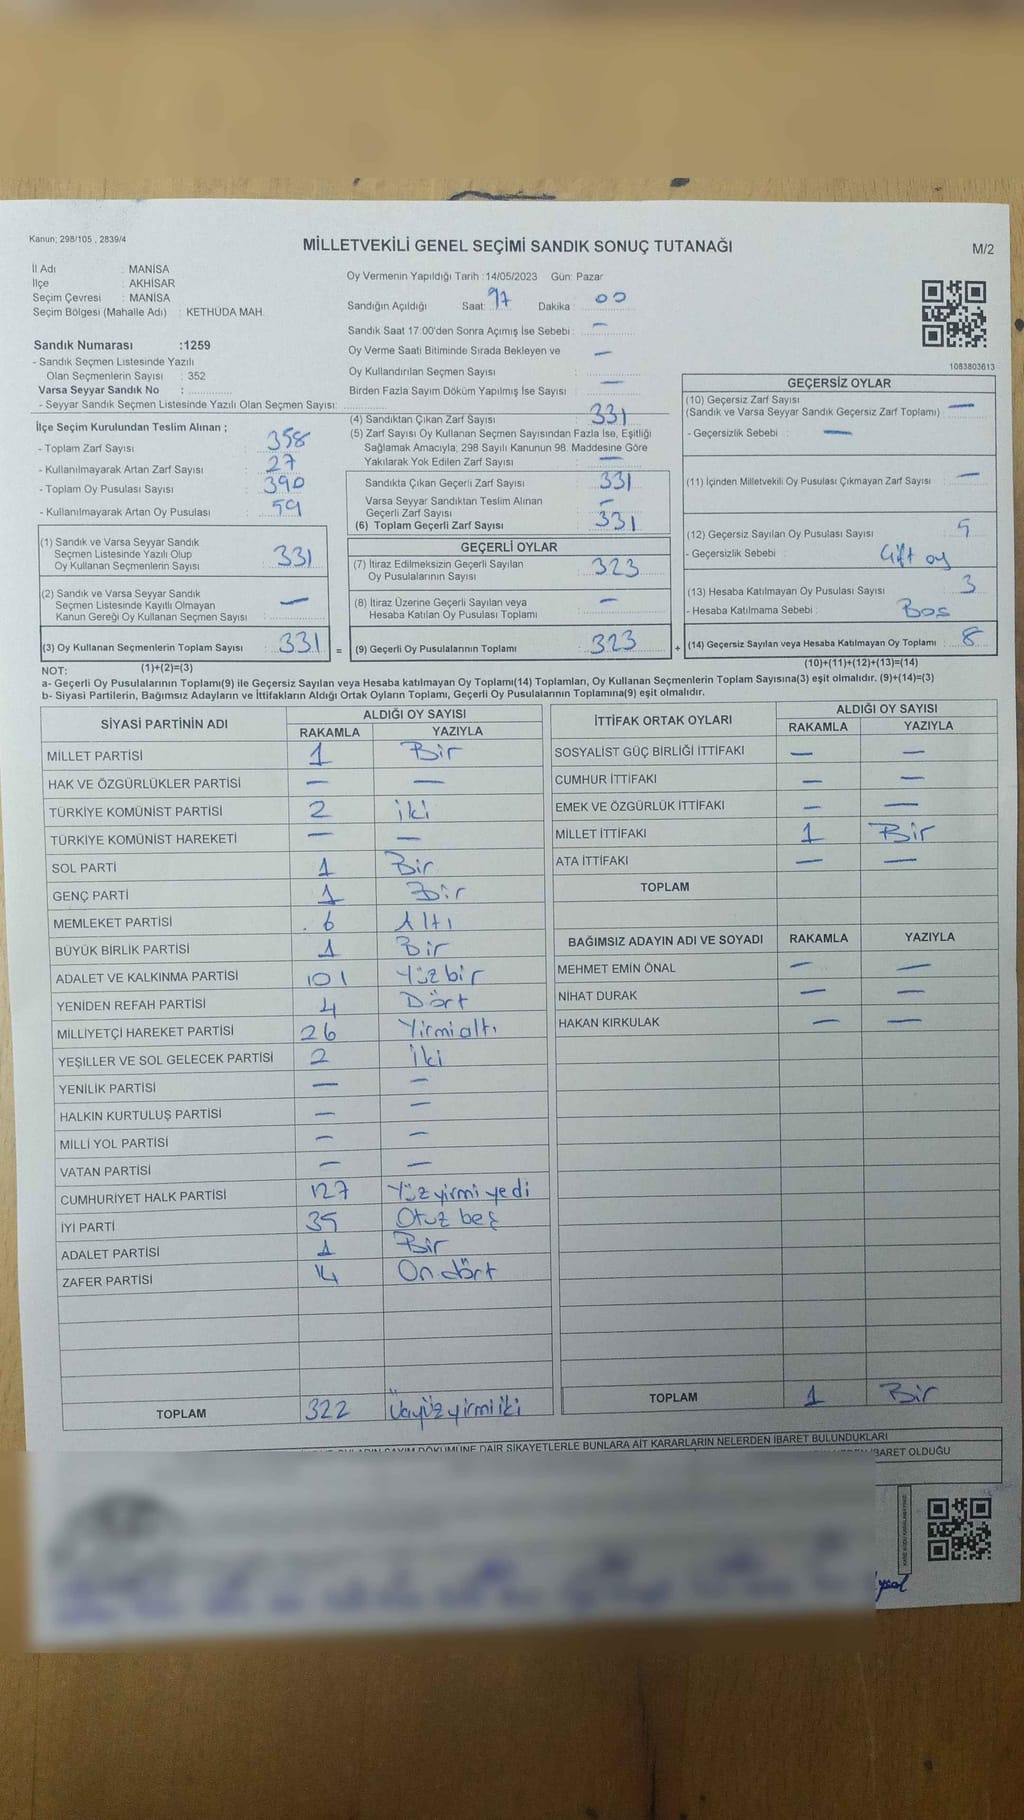 Kanun; 298/105 , 2839/4
MİLLETVEKİLİ GENEL SEÇİMİ SANDIK SONUÇ TUTANAĞI
M/2
İl Adı : MANİSA
İlçe : AKHİSAR
Seçim Çevresi : MANİSA
Seçim Bölgesi (Mahalle Adı) : KETHÜDA MAH.
Sandık Numarası :1259
- Sandık Seçmen Listesinde Yazılı
Olan Seçmenlerin Sayısı : 352
Varsa Seyyar Sandık No :
- Seyyar Sandık Seçmen Listesinde Yazılı Olan Seçmen Sayısı:
İlçe Seçim Kurulundan Teslim Alınan ;
- Toplam Zarf Sayısı : 358
- Kullanılmayarak Artan Zarf Sayısı : 27
- Toplam Oy Pusulası Sayısı : 390
- Kullanılmayarak Artan Oy Pusulası : 59
(1) Sandık ve Varsa Seyyar Sandık
Seçmen Listesinde Yazılı Olup
Oy Kullanan Seçmenlerin Sayısı : 331
(2) Sandık ve Varsa Seyyar Sandık
Seçmen Listesinde Kayıtlı Olmayan
Kanun Gereği Oy Kullanan Seçmen Sayısı : —
(3) Oy Kullanan Seçmenlerin Toplam Sayısı : 331 =
(1)+(2)=(3)
Oy Vermenin Yapıldığı Tarih :14/05/2023 Gün: Pazar
Sandığın Açıldığı Saat: 17 Dakika : 00
Sandık Saat 17:00'den Sonra Açımış İse Sebebi : —
Oy Verme Saati Bitiminde Sırada Bekleyen ve —
Oy Kullandırılan Seçmen Sayısı :
Birden Fazla Sayım Döküm Yapılmış İse Sayısı : —
(4) Sandıktan Çıkan Zarf Sayısı : 331
(5) Zarf Sayısı Oy Kullanan Seçmen Sayısından Fazla İse, Eşitliği
Sağlamak Amacıyla; 298 Sayılı Kanunun 98. Maddesine Göre
Yakılarak Yok Edilen Zarf Sayısı : —
Sandıkta Çıkan Geçerli Zarf Sayısı : 331
Varsa Seyyar Sandıktan Teslim Alınan
Geçerli Zarf Sayısı : —
(6) Toplam Geçerli Zarf Sayısı : 331
GEÇERLİ OYLAR
(7) İtiraz Edilmeksizin Geçerli Sayılan
Oy Pusulalarının Sayısı : 323
(8) İtiraz Üzerine Geçerli Sayılan veya
Hesaba Katılan Oy Pusulası Toplamı : —
(9) Geçerli Oy Pusulalarının Toplamı : 323 +
1083803613
GEÇERSİZ OYLAR
(10) Geçersiz Zarf Sayısı
(Sandık ve Varsa Seyyar Sandık Geçersiz Zarf Toplamı) : —
- Geçersizlik Sebebi : —
(11) İçinden Milletvekili Oy Pusulası Çıkmayan Zarf Sayısı : —
(12) Geçersiz Sayılan Oy Pusulası Sayısı : 5
- Geçersizlik Sebebi : Çift oy
(13) Hesaba Katılmayan Oy Pusulası Sayısı : 3
- Hesaba Katılmama Sebebi : Boş
(14) Geçersiz Sayılan veya Hesaba Katılmayan Oy Toplamı : 8
(10)+(11)+(12)+(13)=(14)
NOT:
a- Geçerli Oy Pusulalarının Toplamı(9) ile Geçersiz Sayılan veya Hesaba katılmayan Oy Toplamı(14) Toplamları, Oy Kullanan Seçmenlerin Toplam Sayısına(3) eşit olmalıdır. (9)+(14)=(3)
b- Siyasi Partilerin, Bağımsız Adayların ve İttifakların Aldığı Ortak Oyların Toplamı, Geçerli Oy Pusulalarının Toplamına(9) eşit olmalıdır.
SİYASİ PARTİNİN ADI ALDIĞI OY SAYISI
RAKAMLA YAZIYLA
MİLLET PARTİSİ 1 Bir
HAK VE ÖZGÜRLÜKLER PARTİSİ — —
TÜRKİYE KOMÜNİST PARTİSİ 2 iki
TÜRKİYE KOMÜNİST HAREKETİ — —
SOL PARTİ 1 Bir
GENÇ PARTİ 1 Bir
MEMLEKET PARTİSİ 6 Altı
BÜYÜK BİRLİK PARTİSİ 1 Bir
ADALET VE KALKINMA PARTİSİ 101 Yüzbir
YENİDEN REFAH PARTİSİ 4 Dört
MİLLİYETÇİ HAREKET PARTİSİ 26 Yirmialtı
YEŞİLLER VE SOL GELECEK PARTİSİ 2 İki
YENİLİK PARTİSİ — —
HALKIN KURTULUŞ PARTİSİ — —
MİLLİ YOL PARTİSİ — —
VATAN PARTİSİ — —
CUMHURİYET HALK PARTİSİ 127 Yüzyirmiyedi
İYİ PARTİ 35 Otuz beş
ADALET PARTİSİ 1 Bir
ZAFER PARTİSİ 14 On dört
TOPLAM 322 Üçyüzyirmiiki
İTTİFAK ORTAK OYLARI ALDIĞI OY SAYISI
RAKAMLA YAZIYLA
SOSYALİST GÜÇ BİRLİĞİ İTTİFAKI — —
CUMHUR İTTİFAKI — —
EMEK VE ÖZGÜRLÜK İTTİFAKI — —
MİLLET İTTİFAKI 1 Bir
ATA İTTİFAKI — —
TOPLAM
BAĞIMSIZ ADAYIN ADI VE SOYADI RAKAMLA YAZIYLA
MEHMET EMİN ÖNAL — —
NİHAT DURAK — —
HAKAN KIRKULAK — —
TOPLAM 1 Bir
SAYIM DÖKÜMÜNE DAİR ŞİKAYETLERLE BUNLARA AİT KARARLARIN NELERDEN İBARET BULUNDUKLARI
İBARET OLDUĞU